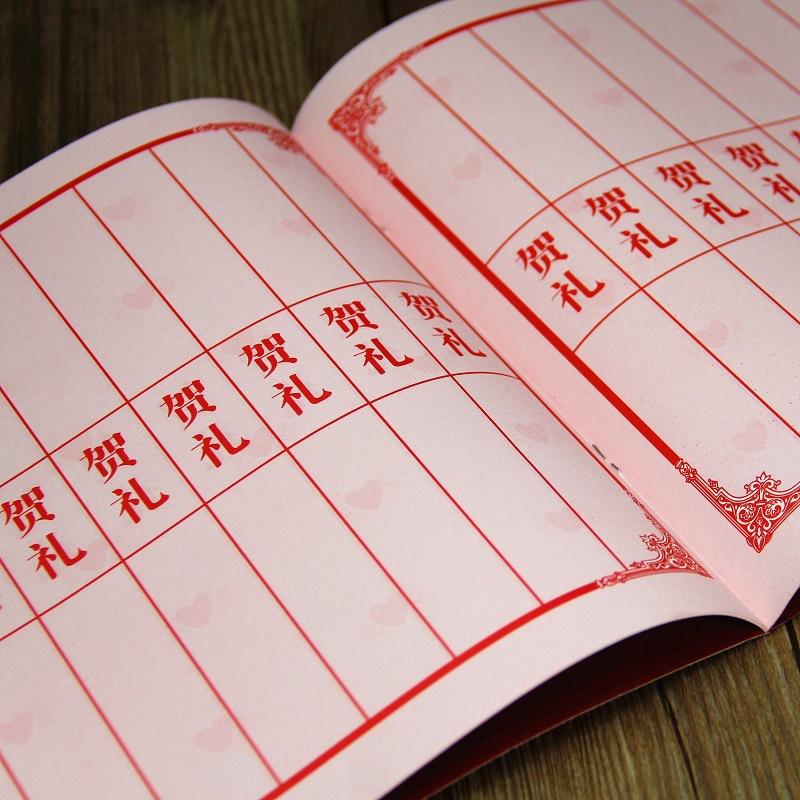 贺礼
贺礼
贺礼
贺礼
贺礼
贺礼
贺礼
贺礼
贺礼
贺礼